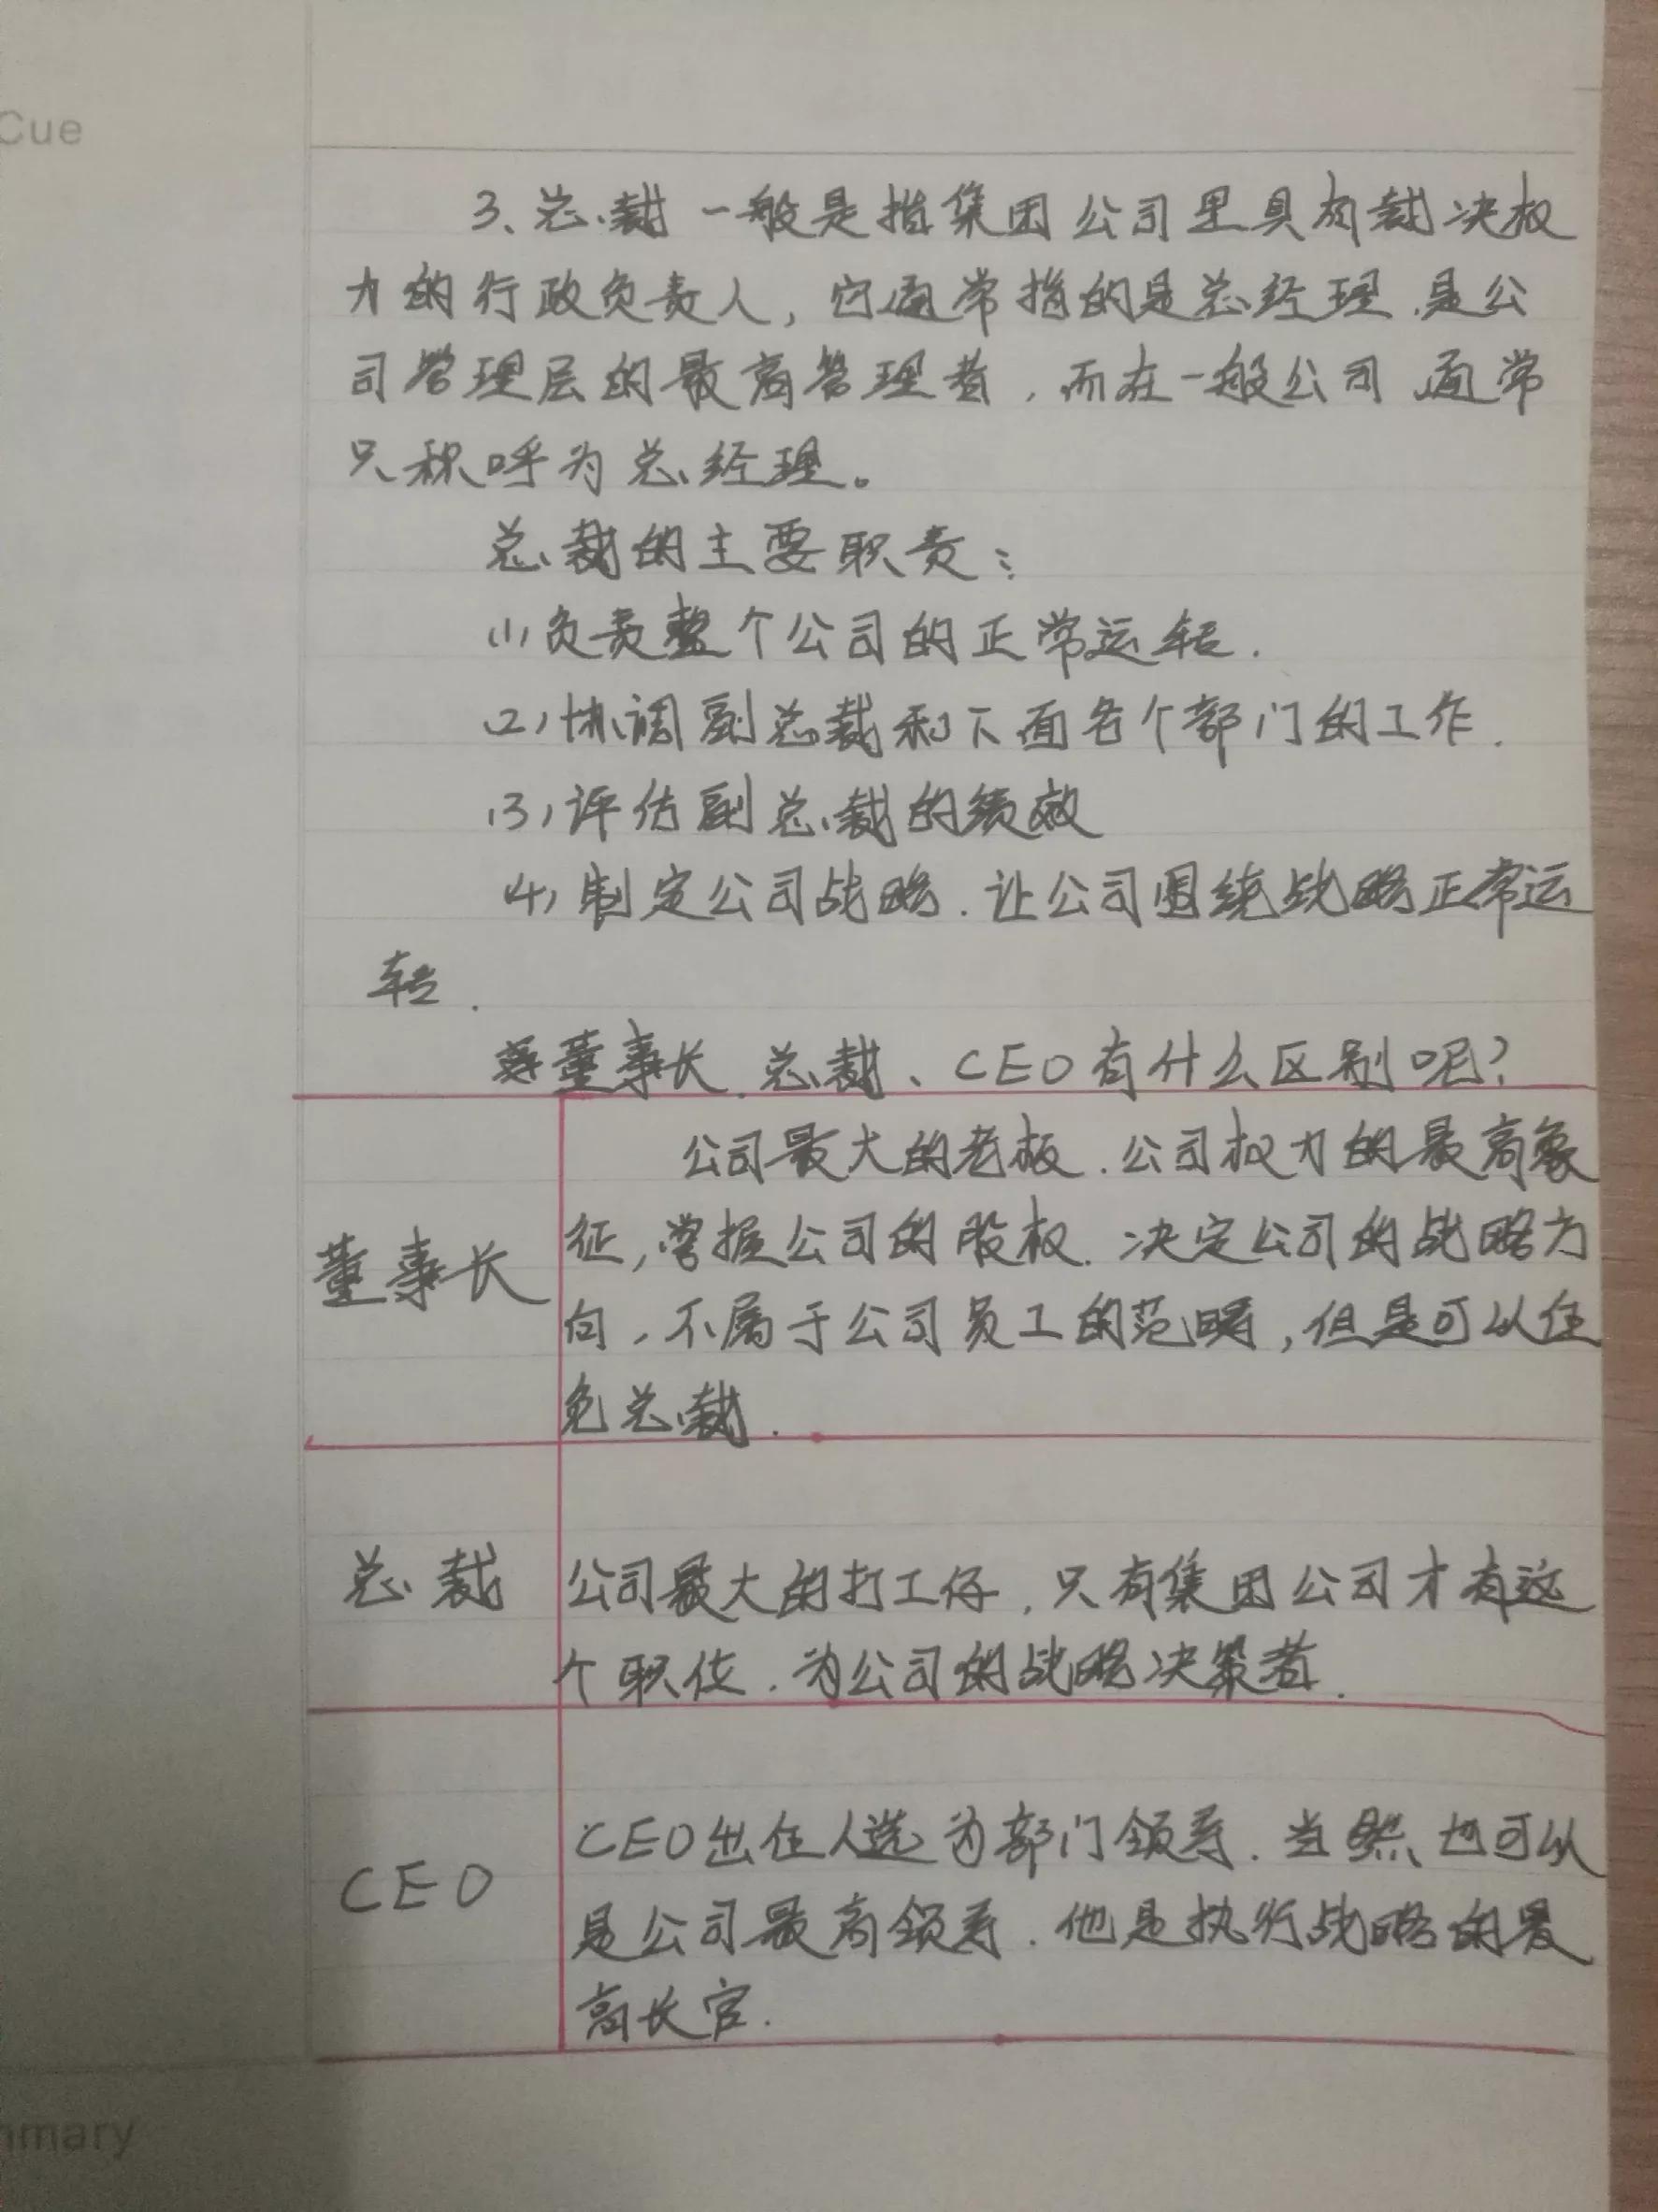 Cue
3、总裁一般是指集团公司里具有裁决权
力的行政负责人，它通常指的是总经理.是公
司管理层的最高管理者，而在一般公司、通常
只称呼为总经理。
总裁的主要职责：
(1)负责整个公司的正常运转.
(2)协调副总裁和下面各个部门的工作.
(3)评估副总裁的绩效
(4)制定公司战略.让公司围绕战略正常运
转.
董事长、总裁、CEO有什么区别呢?
公司最大的老板.公司权力的最高象
征,掌握公司的股权.决定公司的战略方
董事长
向，不属于公司员工的范畴,但是可以任
免总裁.
总裁 公司最大的打工仔，只有集团公司才有这
个职位.为公司的战略决策者.
CEO出任人选为部门领导.当然、也可以
CEO
是公司最高领导.他是执行战略的最
高长官.
mmary